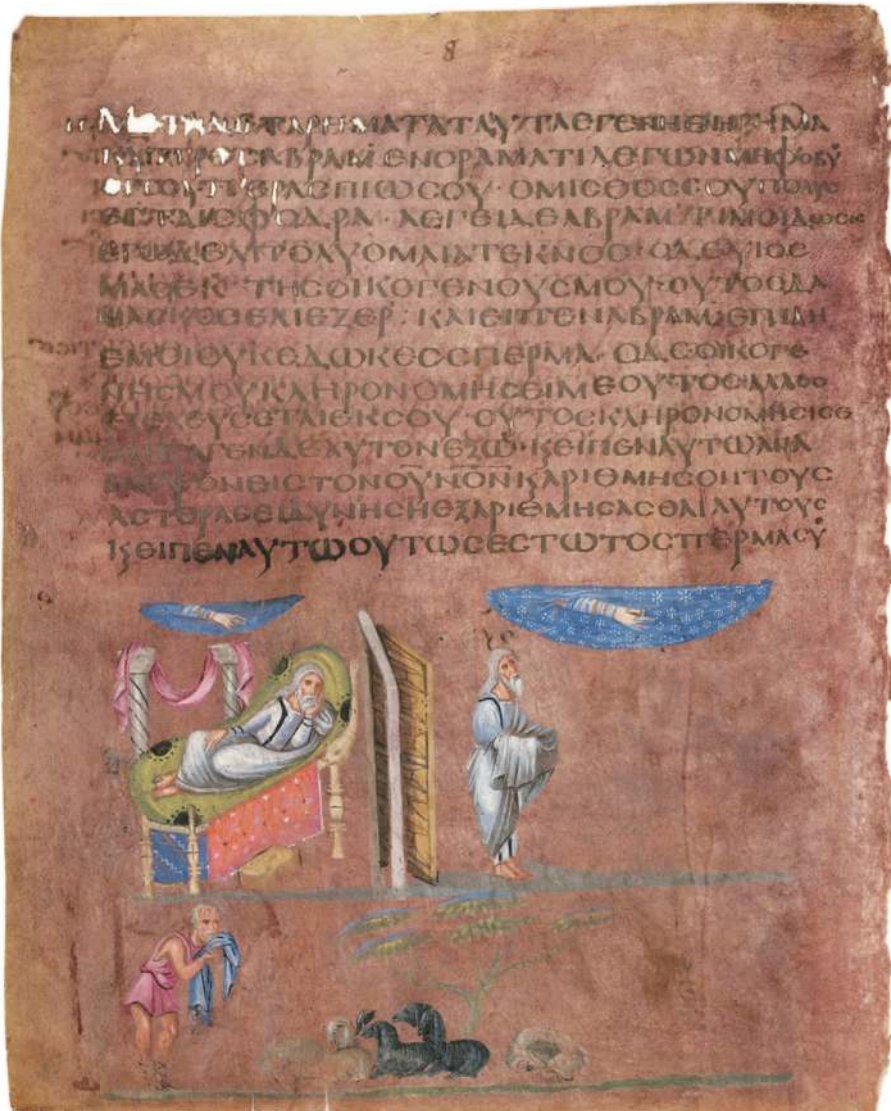 8
ΤΑΡΗΜΑΤΑΤΑΥΤΑΕΓΕΝΗΘΗΡΗΜΑ
ΑΒΡΑΜ ΕΝΟΡΑΜΑΤΙΛΕΓΩΝΜΗΦΟΒΟΥ
ϹΟΥ· ΟΜΙϹΘΟϹϹΟΥΠΟΛΥϹ
ΕϹΤΑΙϹΦΟΔΡΑ· ΛΕΓΕΙΔΕΑΒΡΑΜ ΤΙΜΟΙΔΩϹΕΙϹ
ΕΓΩΔΕΑΠΟΛΥΟΜΑΙΑΤΕΚΝΟϹ· ΟΔΕΥΙΟϹ
ΜΑϹΕΚ ΤΗϹΟΙΚΟΓΕΝΟΥϹΜΟΥ· ΟΥΤΟϹΔΑ
ΜΑϹΚΟϹΕΛΙΕΖΕΡ: ΚΑΙΕΙΠΕΝΑΒΡΑΜ· ΕΠΙΔΗ
ΕΜΟΙΟΥΚΕΔΩΚΕϹϹΠΕΡΜΑ· ΟΔΕΟΙΚΟΓΕ
ΝΗϹΜΟΥΚΛΗΡΟΝΟΜΗϹΕΙΜΕΟΥΤΟϹ·ΑΛΛΟϹ
ΕΞΕΛΕΥϹΕΤΑΙΕΚϹΟΥ· ΟΥΤΟϹΚΛΗΡΟΝΟΜΗϹΙϹΕ
ΓΕΝΔΕΑΥΤΟΝΕΞΩ· ϏΕΙΠΕΝΑΥΤΩΑΝΑ
ΒΛΕΨΟΝΕΙϹΤΟΝΟΥΝΟΝϏΑΡΙΘΜΗϹΟΝΤΟΥϹ
ΑϹΤΕΡΑϹΕΙΔΥΝΗϹΗΕΞΑΡΙΘΜΗϹΑϹΘΑΙΑΥΤΟΥϹ
ϏΕΙΠΕΝΑΥΤΩΟΥΤΩϹΕϹΤΩΤΟϹΠΕΡΜΑϹΟΥ